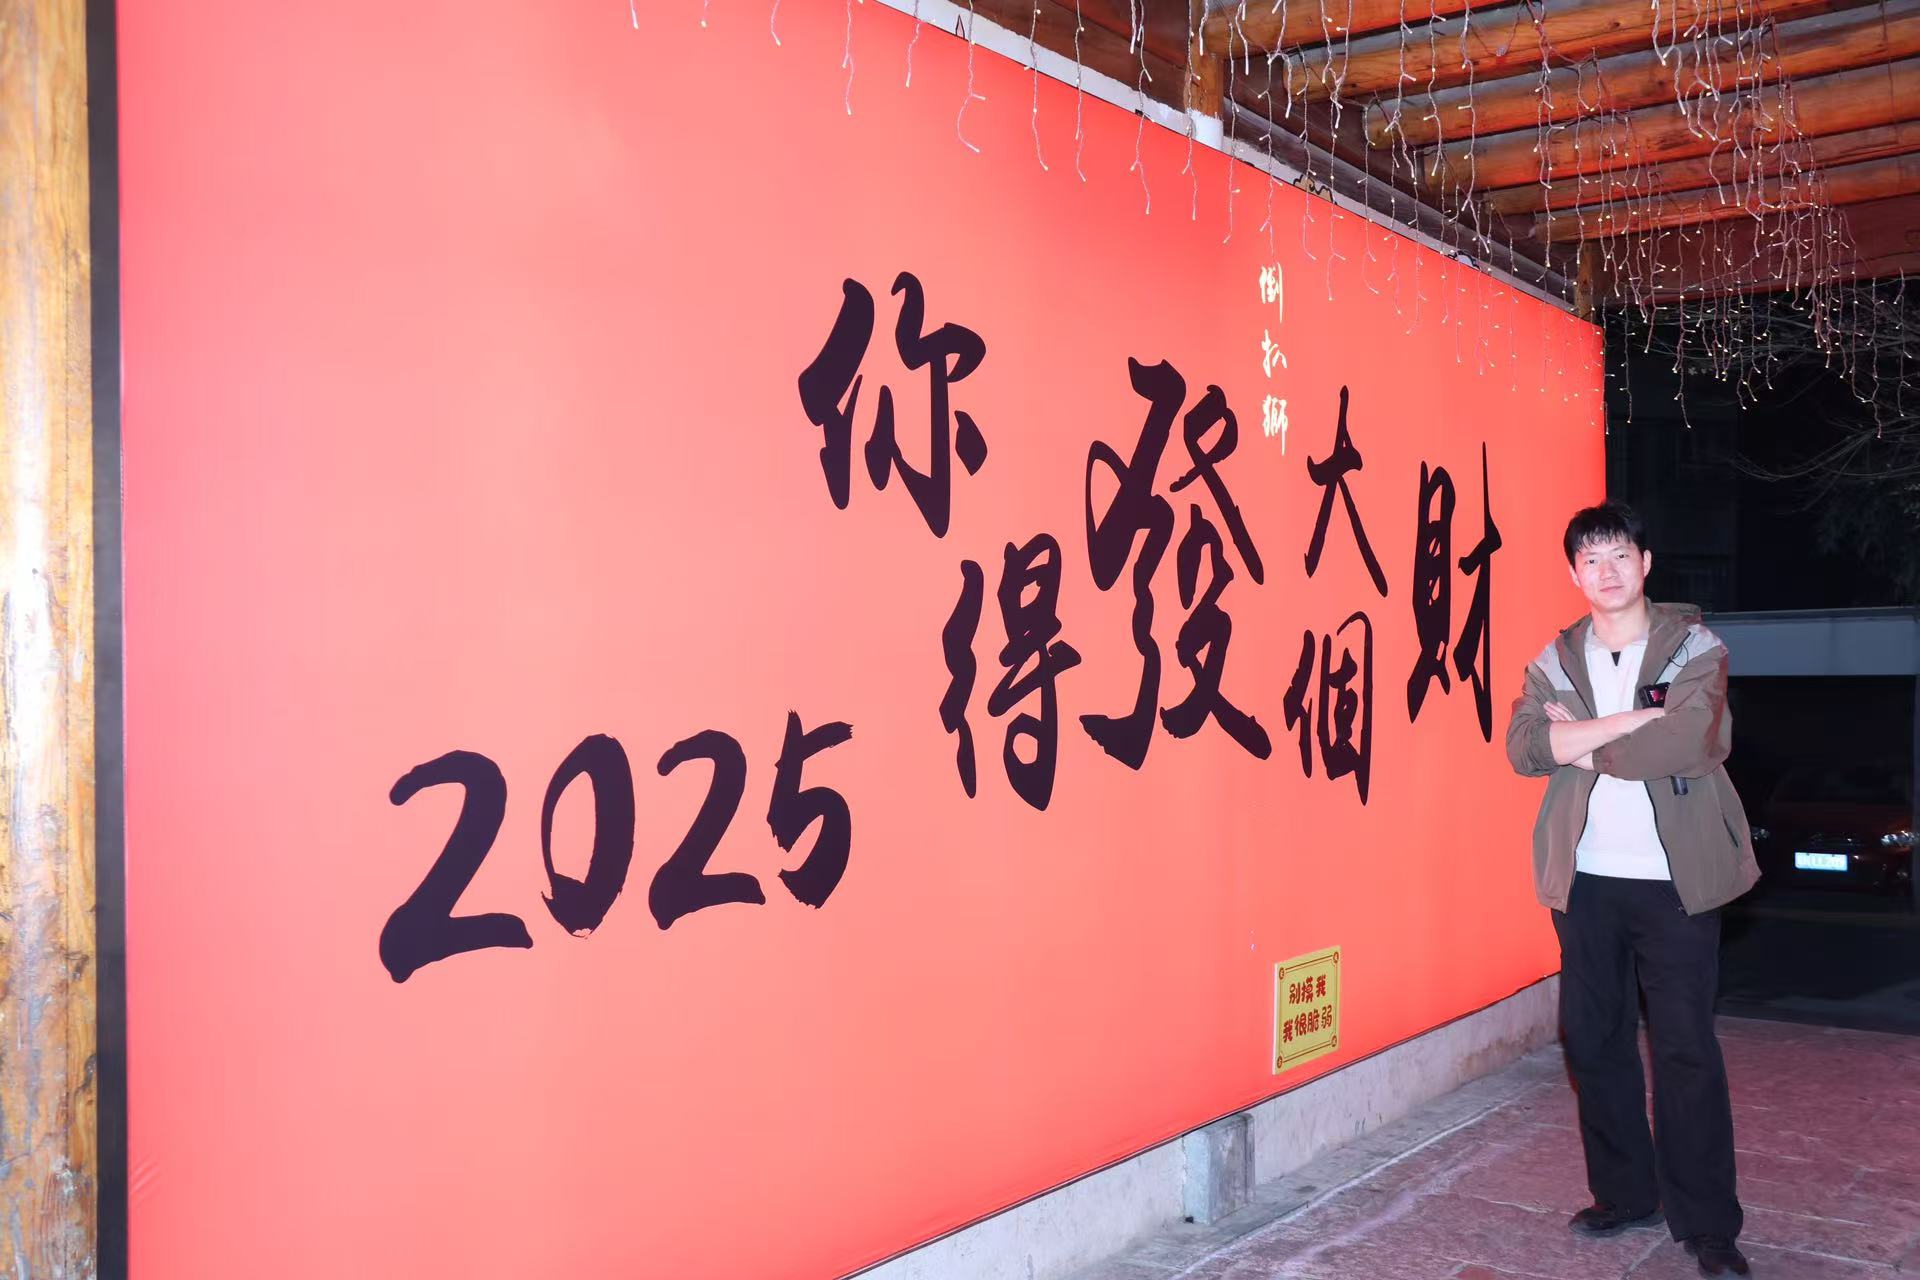 2025
你得發大個財
倒扒獅
别摸我
我很脆弱